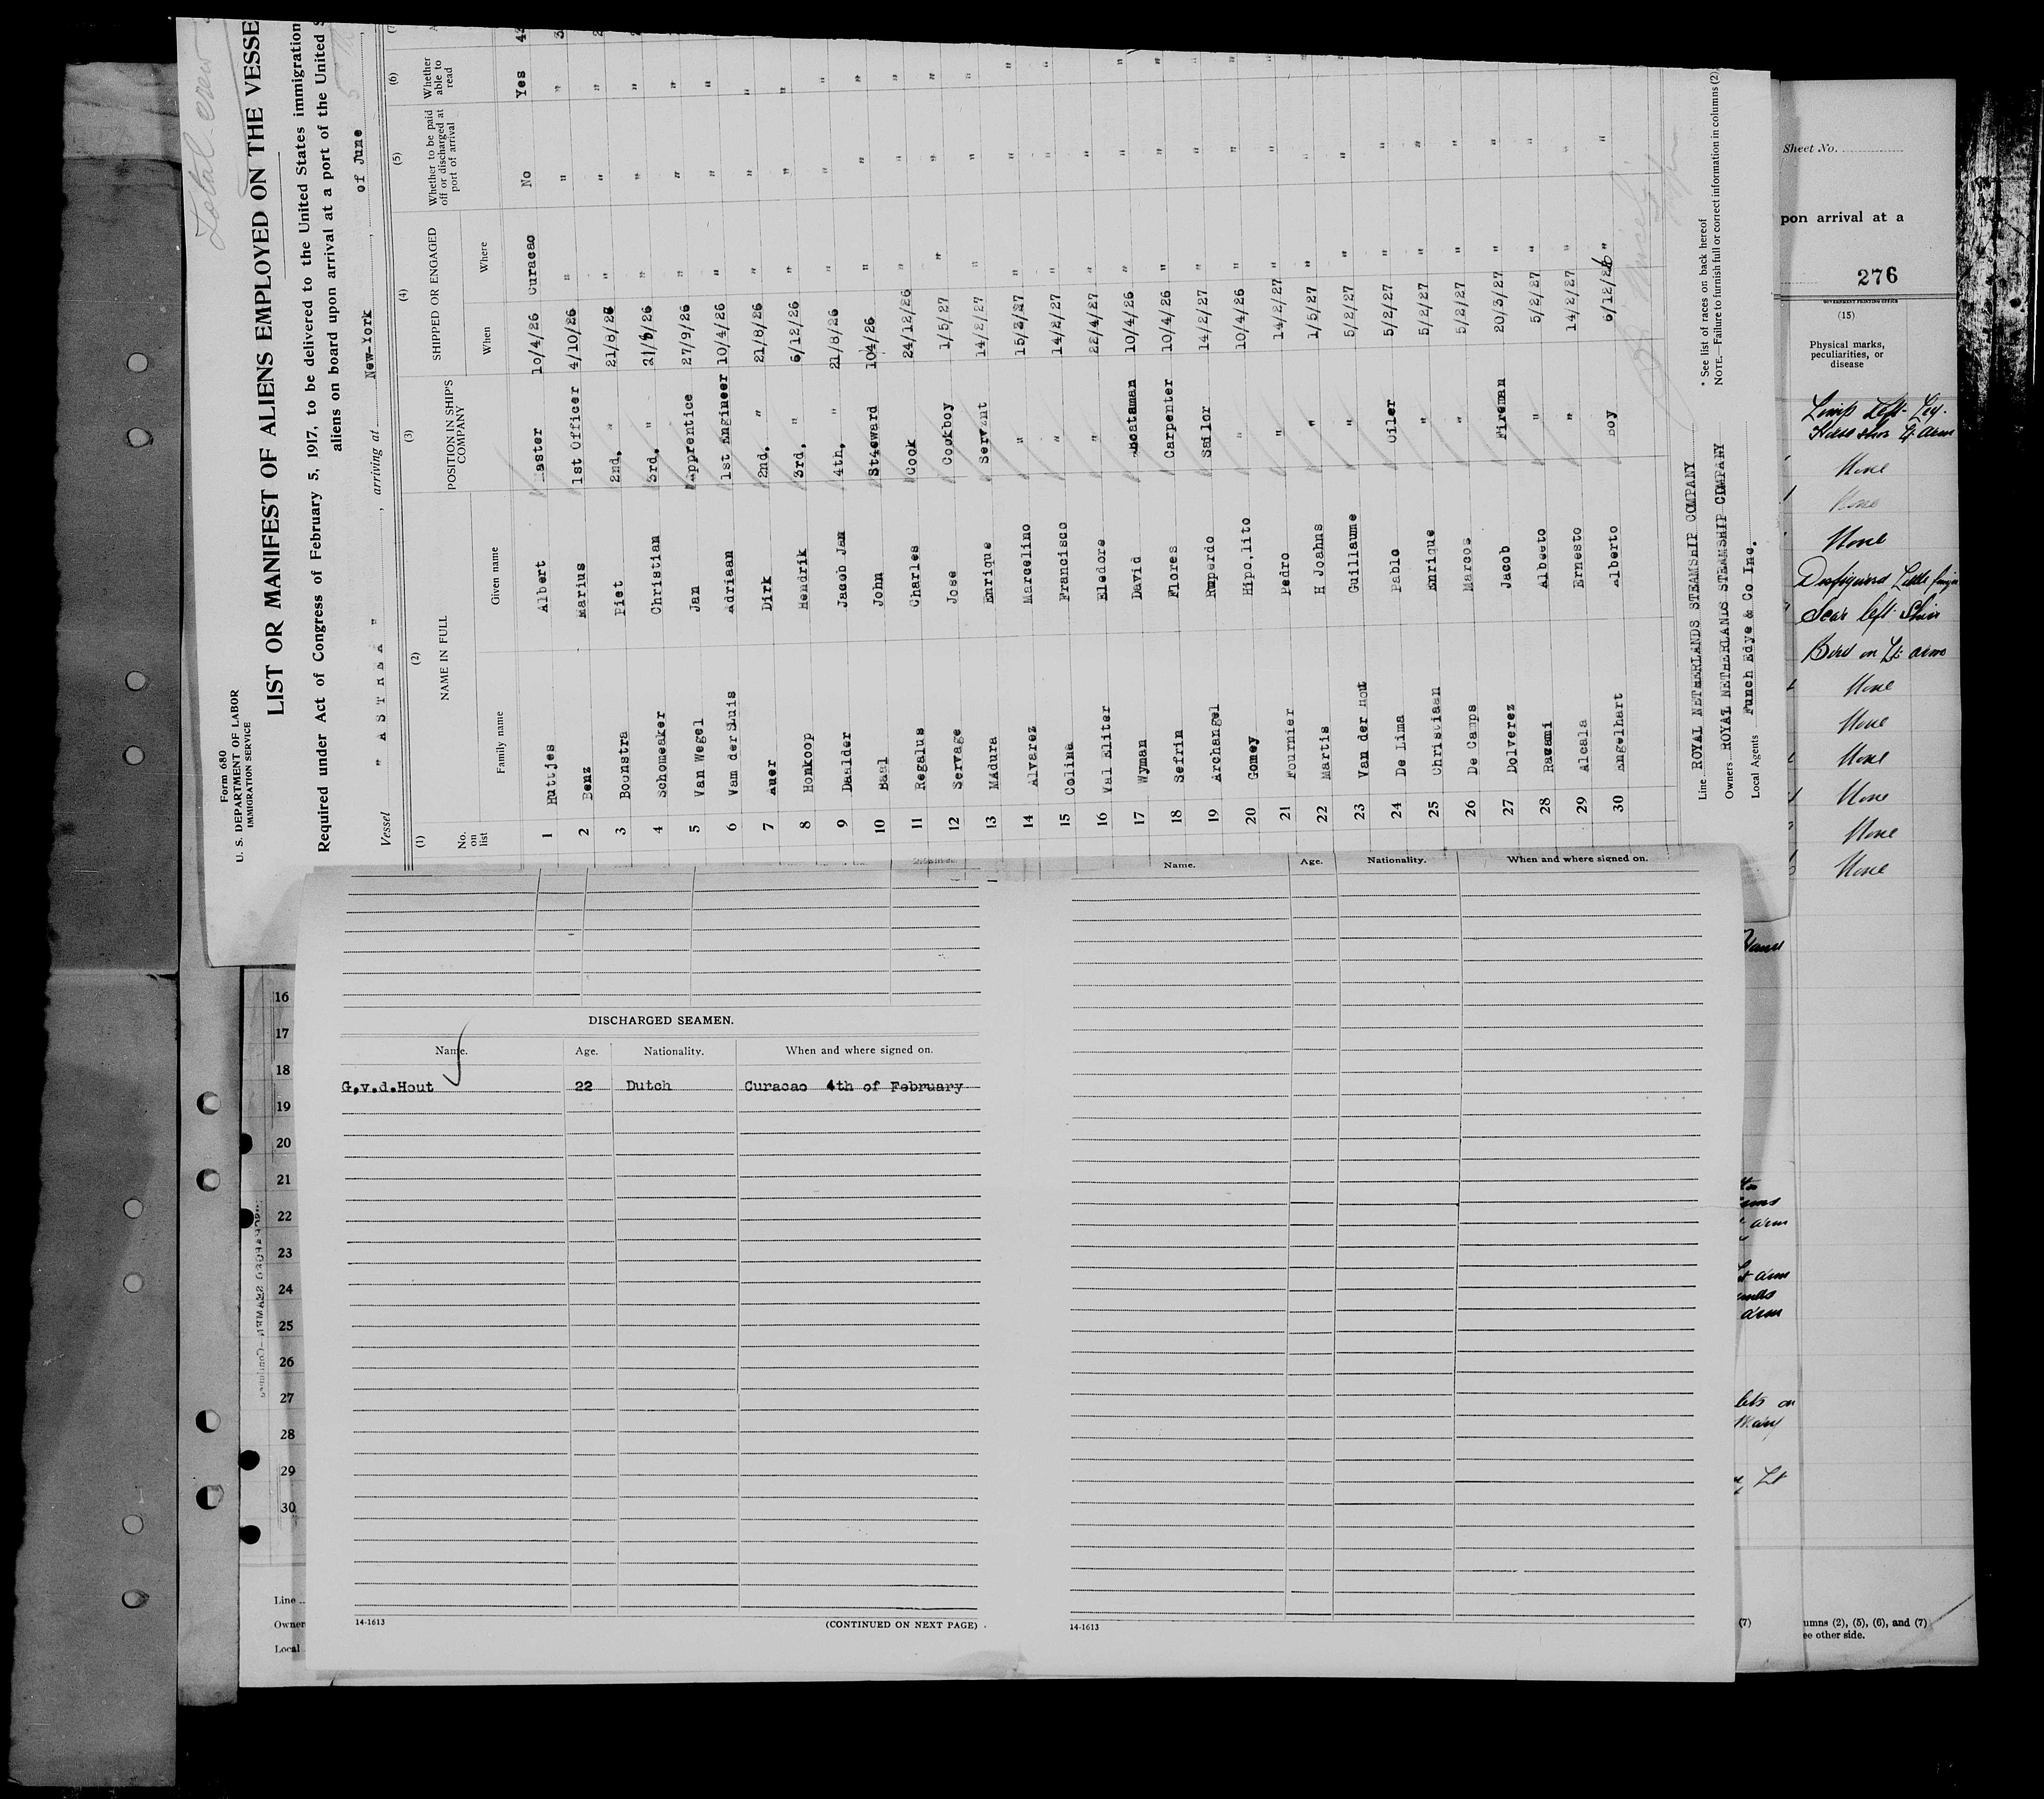 Total crew
Form 680
U. S. DEPARTMENT OF LABOR
IMMIGRATION SERVICE
LIST OR MANIFEST OF ALIENS EMPLOYED ON THE VESSE
Required under Act of Congress of February 5, 1917, to be delivered to the United States immigration
aliens on board upon arrival at a port of the United S
Vessel " A S T R E A " , arriving at New-York , of June
(1) (2) (3) (4) (5) (6) (7)
No. on list NAME IN FULL POSITION IN SHIP'S COMPANY SHIPPED OR ENGAGED Whether to be paid off or discharged at port of arrival Whether able to read
Family name Given name When Where
1 Huttjes Albert Master 10/4/26 Curacao No Yes
2 Benz Marius 1st Officer 4/10/26 " " "
3 Boonstra Piet 2nd. " 21/8/26 " " "
4 Schomeaker Christian 3rd. " 21/8/26 " " "
5 Van Wegel Jan Apprentice 27/9/26 " " "
6 Vam der Sluis Adriaan 1st Engineer 10/4/26 " " "
7 Auer Dirk 2nd. " 21/8/26 " " "
8 Honkoop Hendrik 3rd. " 6/12/26 " " "
9 Daalder Jacob Jan 4th. " 21/8/26 " " "
10 Baal John St4eward 104/26 " " "
11 Regalus Charles Cook 24/12/26 " " "
12 Servage Jose Cookboy 1/5/27 " " "
13 Madura Enrique Servant 14/2/27 " " "
14 Alvarez Marcelino " 15/2/27 " " "
15 Colina Francisco " 14/2/27 " " "
16 Val Eliter Eledore " 22/4/27 " "
17 Wyman David Boatsman 10/4/26 " " "
18 Sefrin Flores Carpenter 10/4/26 " " "
19 Archangel Ruperdo Sailor 14/2/27 " " "
20 Gomey Hipo.lito " 10/4/26 " " "
21 Fournier Pedro " 14/2/27 " " "
22 Martis H Joahns " 1/5/27 " " "
23 Van der Hout Guillaume " 5/2/27 " " "
24 De Lima Pablo Oiler 5/2/27 " "
25 Christiaan Enrique " 5/2/27 " "
26 De Camps Marcos " 5/2/27 " "
27 Dolverez Jacob Fireman 20/3/27 " "
28 Racami Albeeto " 5/2/27 " "
29 Alcala Ernesto " 14/2/27 " "
30 Angelhart Alberto Boy 6/12/26 " "
Line ROYAL NETHERLANDS STEAMSHIP COMPANY
Owners ROYAL NETHERLANDS STEAMSHIP COMPANY
Local Agents Funch Edye & Co Inc.
* See list of races on back hereof
NOTE.—Failure to furnish full or correct information in columns (2)
DISCHARGED SEAMEN.
Name. Age. Nationality. When and where signed on.
G.v.d.Hout 22 Dutch Curacao 4th of February
14-1613 (CONTINUED ON NEXT PAGE)
Name. Age. Nationality. When and where signed on.
14-1613
16
17
18
19
20
21
22
23
24
25
26
27
28
29
30
Line
Owner
Local
Sheet No.
pon arrival at a
276
GOVERNMENT PRINTING OFFICE
(15)
Physical marks, peculiarities, or disease
Limp Left Leg.
None
None
None
Disfigured Little finger
Scar left Shin
Bird on Lt arm
None
None
None
None
None
None
arm
arm
arm
Lt
(7)
umns (2), (5), (6), and (7)
ee other side.